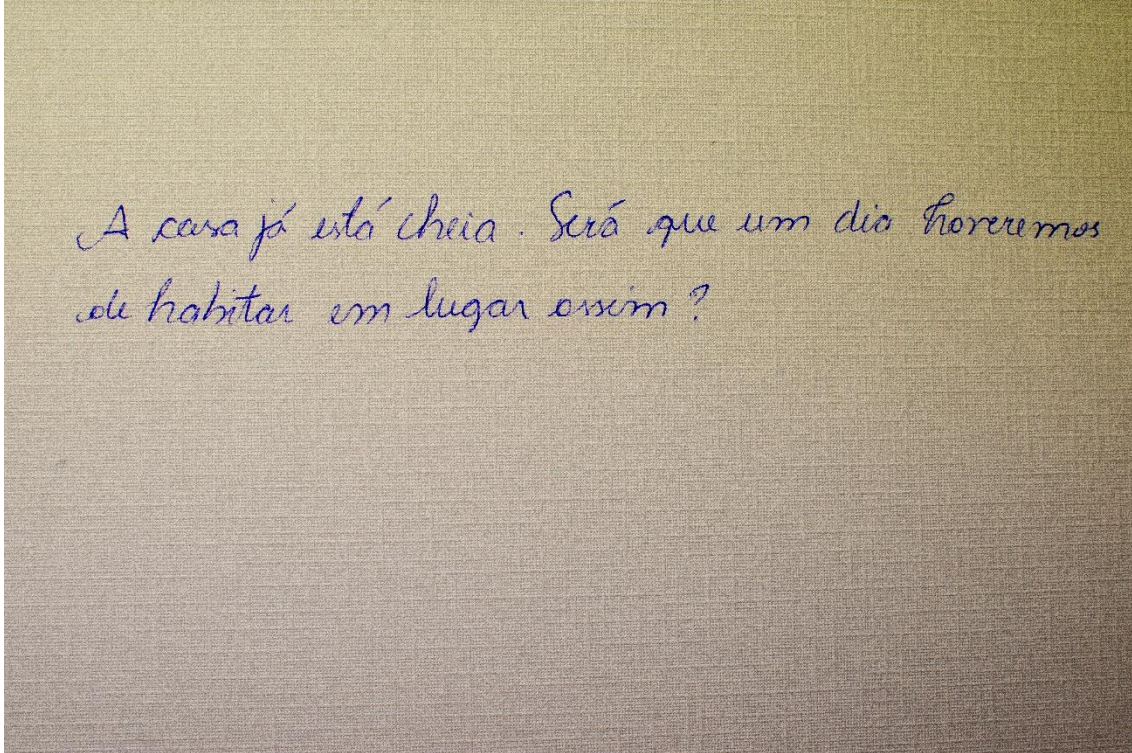 A casa já está cheia. Será que um dia haveremos
de habitar em lugar assim?